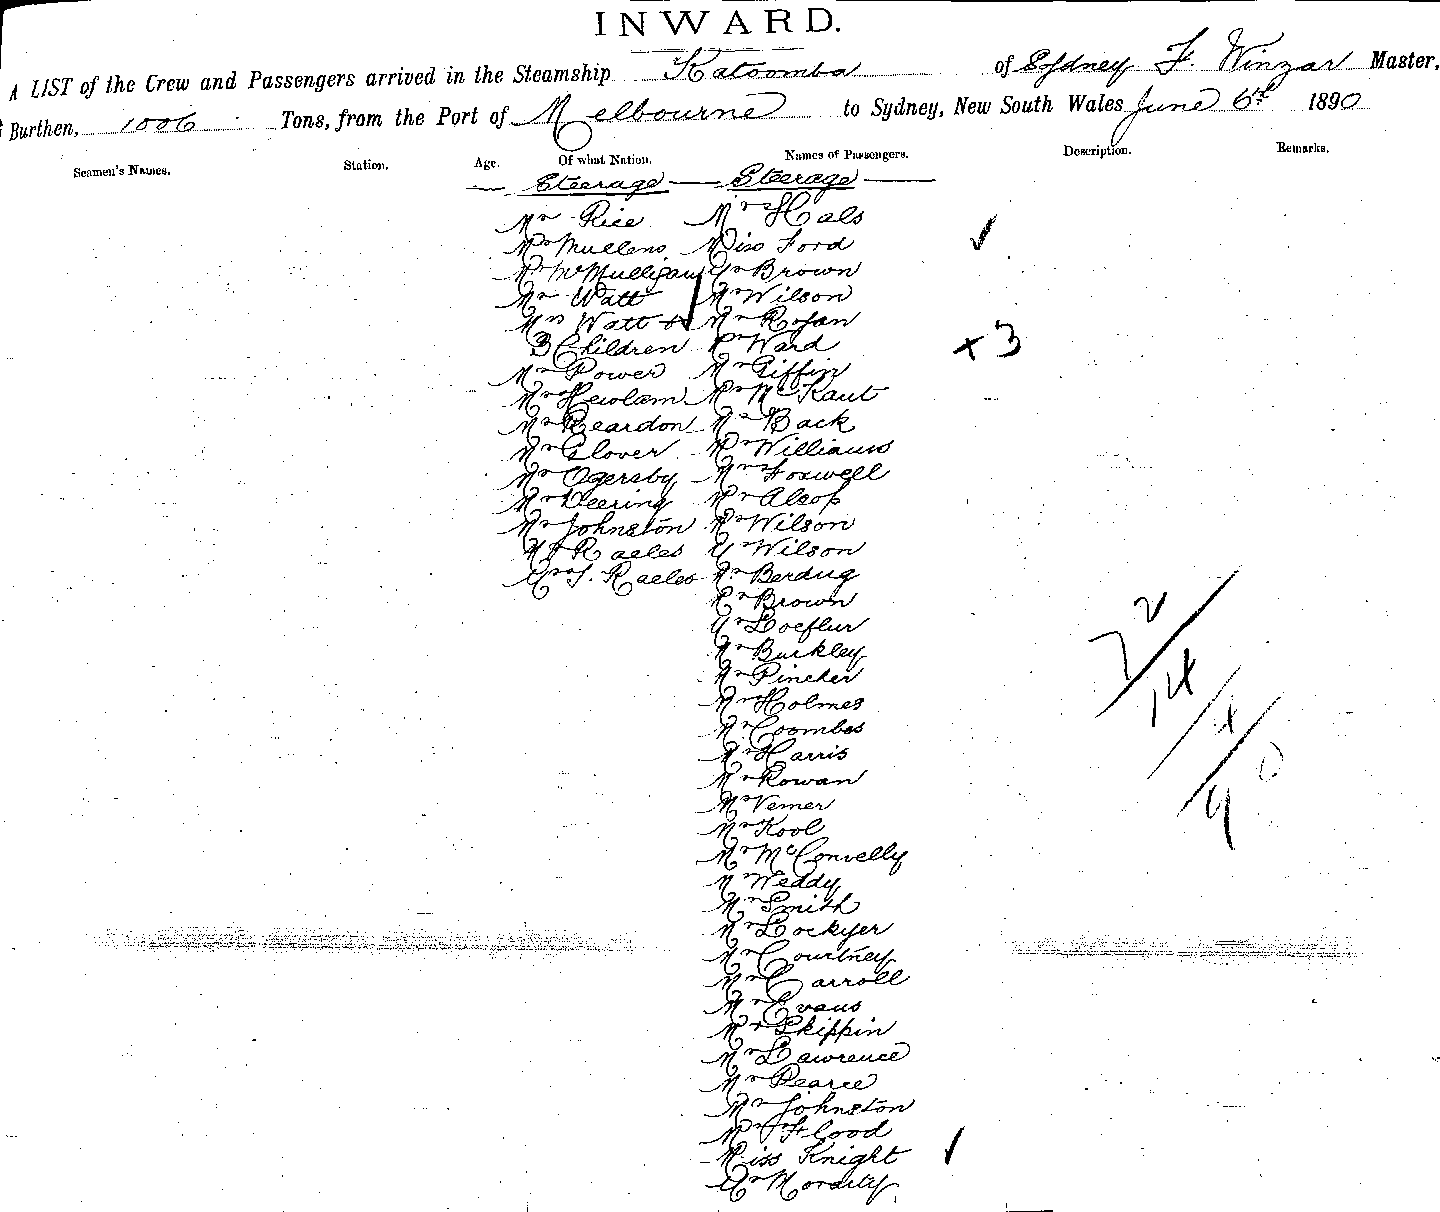 INWARD.
A LIST of the Crew and Passengers arrived in the Steamship Katoomba of Sydney F. Winzar Master,
Burthen, 1006 Tons, from the Port of Melbourne to Sydney, New South Wales June 6th 1890
Seamen's Names. Station. Age. Of what Nation. Names of Passengers. Description. Remarks.
Steerage Steerage
Mr Rice Mr Hals
Mr Mullens Miss Ford
Mr McMulligan Mr Brown
Mr Watt Mr Wilson
Mrs Watt & Mr
3 Children Mr Ward
+3
Mr Power Mr Giffin
Mr Hewlam Mr McKaut
Mr Reardon Mr Back
Mr Glover Mr Williams
Mr Ogersby Mr Foxwell
Mr Deering Mr Alsop
Mr Johnston Mr Wilson
Raeles Mr Wilson
Raeles Mr Berdug
Mr Brown
Mr Loeflur
Mr Burkley
Mr Pincher
Mr Holmes
Mr Coombes
Mr Harris
Mr Rowan
Mr Vemer
Mr Kool
Mr McConvelly
Mr Weddy
Mr Smith
Mr Lockyer
Mr Courtney
Mr Carroll
Mr Evans
Mr Skippin
Mr Lawrence
Mr Pearce
Mr Johnston
Mr Flood
Miss Knight
Mr Moraity